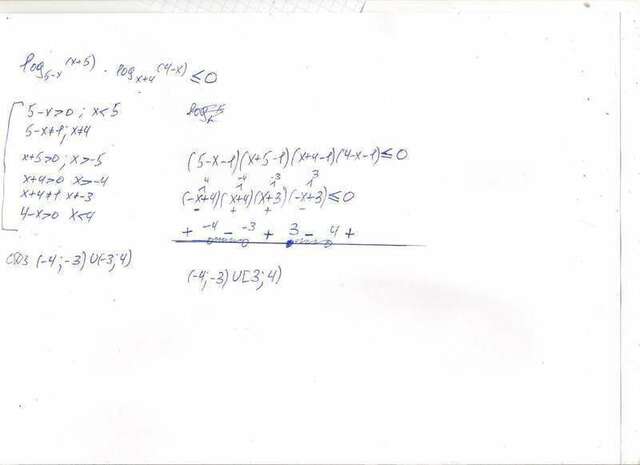 log₅₋ₓ(x+5) · logₓ₊₄(4-x) ≤ 0
5-x>0 ; x<5
5-x≠1 ; x≠4
x+5>0 ; x>-5
x+4>0 x>-4
x+4≠1 x≠-3
4-x>0 x<4
ОДЗ (-4;-3)∪(-3;4)
(5-x-1)(x+5-1)(x+4-1)(4-x-1)≤0
4 -4 -3 3
(-x+4)(x+4)(x+3)(-x+3)≤0
- + + -
+ -4 - -3 + 3 - 4 +
(-4;-3)∪[3;4)